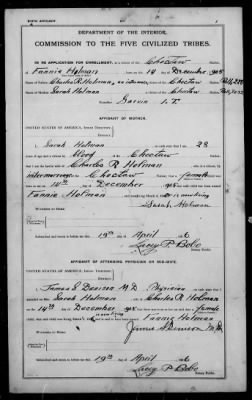 BIRTH AFFIDAVIT.
DEPARTMENT OF THE INTERIOR.
COMMISSION TO THE FIVE CIVILIZED TRIBES.
IN RE APPLICATION FOR ENROLLMENT, as a citizen of the Choctaw Nation,
of Fannie Holman, born on the 14 day of December, 1905
Name of Father: Charles R. Holman, a citizen of the Choctaw Nation.
Name of Mother: Sarah Holman a citizen of the Choctaw Nation.
Postoffice Garvin I.T.
AFFIDAVIT OF MOTHER.
UNITED STATES OF AMERICA, Indian Territory,
I, Sarah Holman, on oath state that I am 28
years of age and a citizen by Blood, of the Choctaw Nation;
that I am the lawful wife of Charles R Holman, who is a citizen, by
intermarriage of the Choctaw Nation; that a female child was
born to me on 14th day of December, 1905, that said child has been named
Fannie Holman, and is now living.
Sarah Holman
Subscribed and sworn to before me this 19th day of April, 1906
Lacey P. Bobo
Notary Public.
AFFIDAVIT OF ATTENDING PHYSICIAN OR MIDWIFE.
UNITED STATES OF AMERICA, Indian Territory,
I, James S Denison M.D., a Physician, on oath state that I
attended on Mrs. Sarah Holman, wife of Charles R Holman
on the 14th day of December, 1905, that there was born to her on said date a female
child; that said child is now living and is said to have been named Fannie Holman
James S Denison M.D.
Subscribed and sworn to before me this 19th day of April, 1906
Lacey P. Bobo
Notary Public.